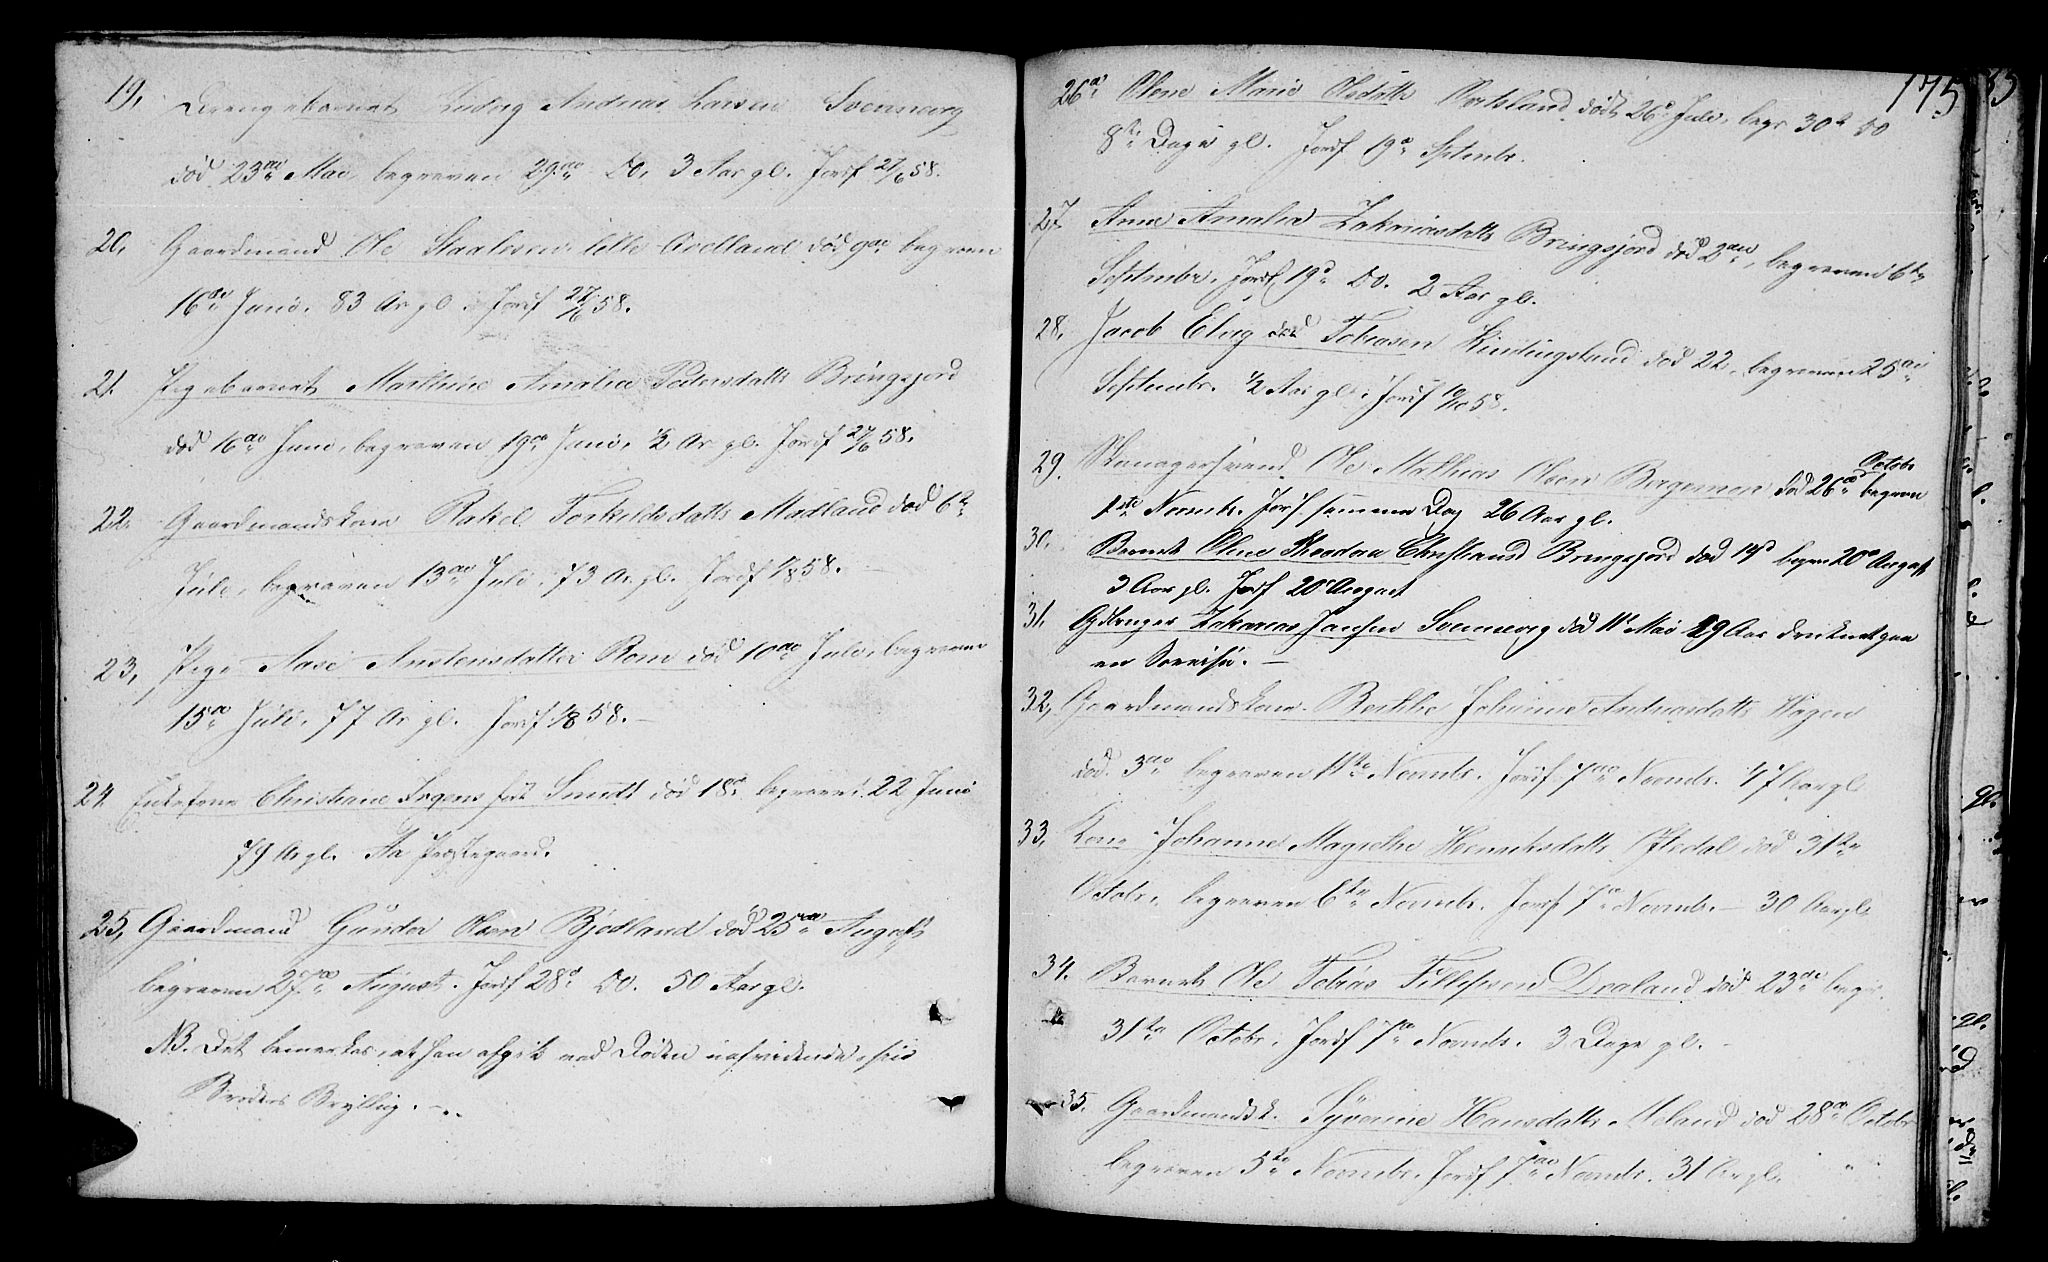 19, Drengebarnet Ludvig Andreas Larsen Svennevig
død 23de Mai, begraven 29de Do, 3 Aar gl. Jordf 27/6 58.
20, Gaardmand Ole Staalesen lille Avelland død 9de begraven
16de Juni. 83 Ar gl. Jordf 27/6 58.
21. Pigebarnet Marthine Amalia Pedersdattr Bringsjord
død 16de Juni, begraven 19de Juni, 1/2 Ar gl. Jordf 27/6 58.
22. Gaardmandskone Rakel Torkildsdattr Midland død 6te
Juli, begraven 13de Juli. 73 Ar gl. Jordf 1/8 58.
23, Pige Aase Anstensdatter Rom død 10de Juli, begraven
15de Juli. 77 Ar gl. Jordf 1/8 58.
24. Enkefrue Christiane Irgens født Smidt død 18de begravet 22 Juni
79 Ar gl. Aa Præstegaard.
25, Gaardmand Gunder Olsen Bjødland død 25de August
begraven 27de August. Jordf 28de Do. 50 Aar gl.
NB. Det bemerkes, at han afgik ved Døden uafvidende i sin
Broders Bryllup.
175
26de Olene Marie Olsdattr død 26de Juli, begr 30te Do
8te Dage gl. Jordf 19de Septembr.
27. Anne Amalia Zakariasdattr Bringsjord død 2den, begraven 6te
Septembr. Jordf 19de Do. 2 Aar gl.
28. Jacob Elvig Tobiasen død 22, begraven 25de
Septembr. 1/2 Aar gl. Jordf 10/10 58.
29. Ole Mathias Olsen Bergsmen død 26de Octobr begraven
1ste Novembr. Jordf samme Dag 26 Aar gl.
30. Barnet Oline Theodora Bringsjord død 14de begr 20de August
3 Aar gl. Jordf 20de August
31. Gdbruger Zakarias Jansen Svennevig død 11te Mai 29 Aar druknet paa
en Søreise.
32, Gaardmandskone Berthe Johanne Andreasdattr Hagen
død 3de begraven 11te Novembr. Jordf 7de Novembr. 47 Aar gl.
33, Kone Johanne Magrethe Henriksdattr Oftedal død 31te
Octobr, begraven 6te Novembr. Jordf 7de Novembr. 30 Aar gl.
34. Barnet Ole Tobias Tellefsen Draland død 23de begr.
31te Octobr. Jordf 7de Novembr. 3 Dage gl.
35. Gaardmandsk. Syverine Hansdattr Meland død 28de Octobr
begraven 5te Novembr. Jordf 7de Novembr. 31 Aar gl.